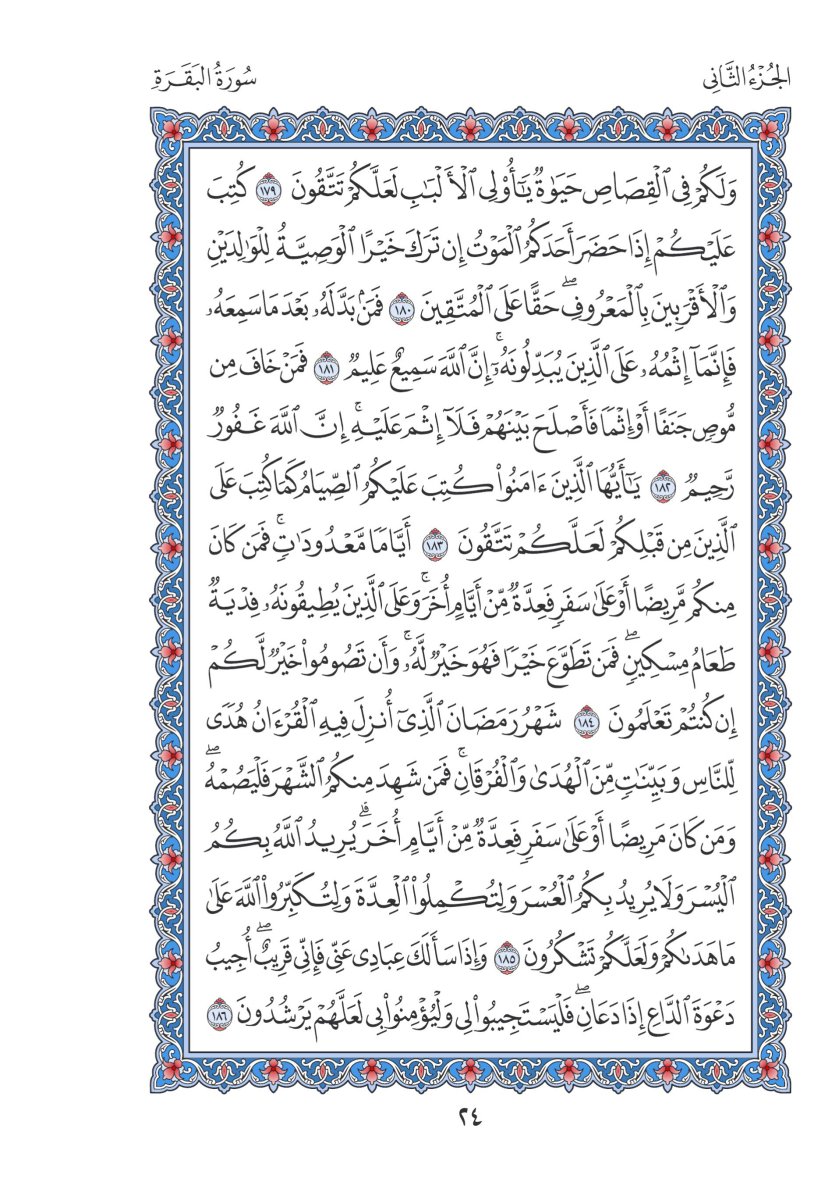 الجُزْءُ الثَّانِى
سُورَةُ البَقَرَةِ
وَلَكُمْ فِى ٱلْقِصَاصِ حَيَوٰةٌ يَـٰٓأُو۟لِى ٱلْأَلْبَـٰبِ لَعَلَّكُمْ تَتَّقُونَ ١٧٩ كُتِبَ
عَلَيْكُمْ إِذَا حَضَرَ أَحَدَكُمُ ٱلْمَوْتُ إِن تَرَكَ خَيْرًا ٱلْوَصِيَّةُ لِلْوَٰلِدَيْنِ
وَٱلْأَقْرَبِينَ بِٱلْمَعْرُوفِ ۖ حَقًّا عَلَى ٱلْمُتَّقِينَ ١٨٠ فَمَنۢ بَدَّلَهُۥ بَعْدَ مَا سَمِعَهُۥ
فَإِنَّمَآ إِثْمُهُۥ عَلَى ٱلَّذِينَ يُبَدِّلُونَهُۥٓ ۚ إِنَّ ٱللَّهَ سَمِيعٌ عَلِيمٌ ١٨١ فَمَنْ خَافَ مِن
مُّوصٍ جَنَفًا أَوْ إِثْمًا فَأَصْلَحَ بَيْنَهُمْ فَلَآ إِثْمَ عَلَيْهِ ۚ إِنَّ ٱللَّهَ غَفُورٌ
رَّحِيمٌ ١٨٢ يَـٰٓأَيُّهَا ٱلَّذِينَ ءَامَنُوا۟ كُتِبَ عَلَيْكُمُ ٱلصِّيَامُ كَمَا كُتِبَ عَلَى
ٱلَّذِينَ مِن قَبْلِكُمْ لَعَلَّكُمْ تَتَّقُونَ ١٨٣ أَيَّامًا مَّعْدُودَٰتٍ ۚ فَمَن كَانَ
مِنكُم مَّرِيضًا أَوْ عَلَىٰ سَفَرٍ فَعِدَّةٌ مِّنْ أَيَّامٍ أُخَرَ ۚ وَعَلَى ٱلَّذِينَ يُطِيقُونَهُۥ فِدْيَةٌ
طَعَامُ مِسْكِينٍ ۖ فَمَن تَطَوَّعَ خَيْرًا فَهُوَ خَيْرٌ لَّهُۥ ۚ وَأَن تَصُومُوا۟ خَيْرٌ لَّكُمْ
إِن كُنتُمْ تَعْلَمُونَ ١٨٤ شَهْرُ رَمَضَانَ ٱلَّذِىٓ أُنزِلَ فِيهِ ٱلْقُرْءَانُ هُدًى
لِّلنَّاسِ وَبَيِّنَـٰتٍ مِّنَ ٱلْهُدَىٰ وَٱلْفُرْقَانِ ۚ فَمَن شَهِدَ مِنكُمُ ٱلشَّهْرَ فَلْيَصُمْهُ ۖ
وَمَن كَانَ مَرِيضًا أَوْ عَلَىٰ سَفَرٍ فَعِدَّةٌ مِّنْ أَيَّامٍ أُخَرَ ۗ يُرِيدُ ٱللَّهُ بِكُمُ
ٱلْيُسْرَ وَلَا يُرِيدُ بِكُمُ ٱلْعُسْرَ وَلِتُكْمِلُوا۟ ٱلْعِدَّةَ وَلِتُكَبِّرُوا۟ ٱللَّهَ عَلَىٰ
مَا هَدَىٰكُمْ وَلَعَلَّكُمْ تَشْكُرُونَ ١٨٥ وَإِذَا سَأَلَكَ عِبَادِى عَنِّى فَإِنِّى قَرِيبٌ ۖ أُجِيبُ
دَعْوَةَ ٱلدَّاعِ إِذَا دَعَانِ ۖ فَلْيَسْتَجِيبُوا۟ لِى وَلْيُؤْمِنُوا۟ بِى لَعَلَّهُمْ يَرْشُدُونَ ١٨٦
٢٤